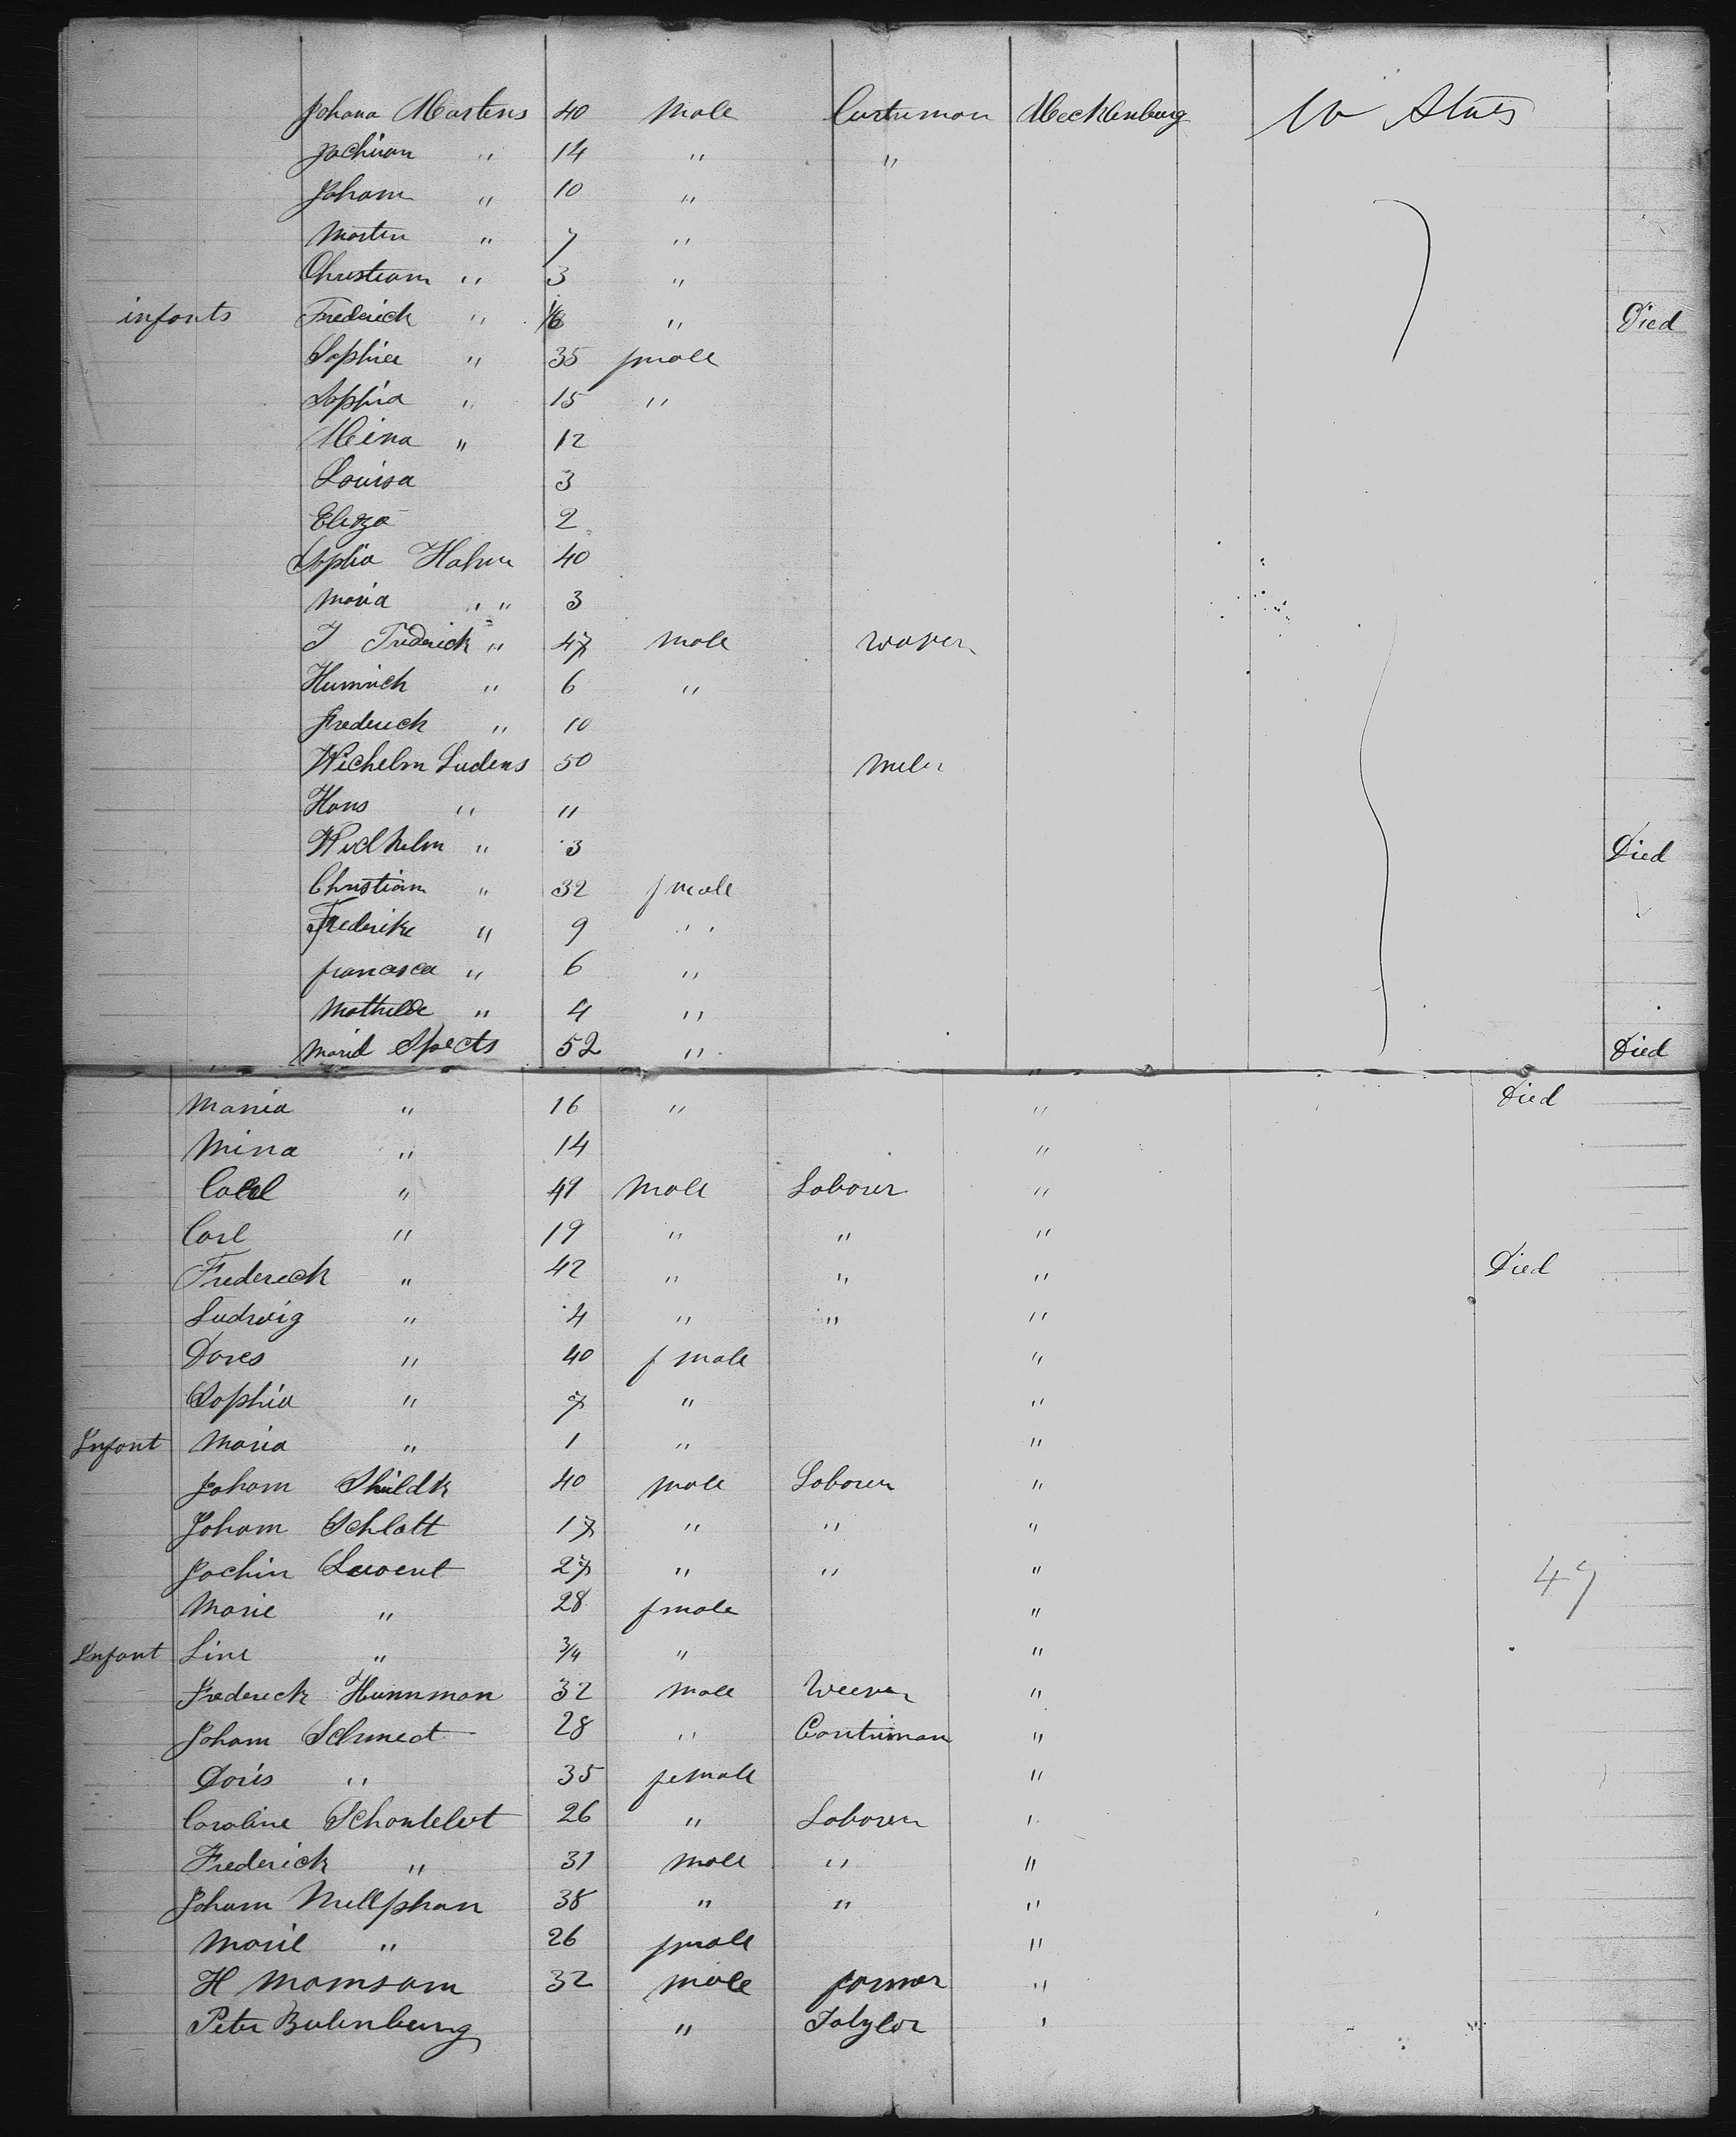 Johana Martens 40 Male Curtuman Mecklenburg U Staes
Jachiam " 14 " "
Joham " 10 "
Marten " 7 "
Christiam " 3 "
infants Frederick " " Died
Sophia " 35 fmale
Sophia " 15 "
Meina " 12
Louisa 3
Eliza 2
Sophia Hahn 40
Maria " " 3
J Frederick " 47 male waver
Heinrich " 6 "
Frederick " 10
Wichelm Ludens 50 Meler
Hans " 11
Widhelm " 3 Died
Christiam " 32 fmale
Frederike " 9 "
francisca " 6 "
Mathilde " 4 "
Maria Spects 52 " Died
Mania " 16 " " Died
Mina " 14 "
Carl " 49 Male Laborer "
Carl " 19 " " "
Fredereck " 42 " " " Died
Ludwig " 4 " " "
Dores " 40 fmale "
Sophia " 7 " "
Infant Maria " 1 " "
Joham Shildk 40 male Laborer "
Joham Schlatt 17 " " "
Jachin 27 " " " 47
Marie " 28 fmale "
Infant Line " 3/4 " "
Fredereck Hunnman 32 Male Weever "
Joham Schmedt 28 " Contuiman "
Doris " 35 female "
Caroline Schontelet 26 " Laborer "
Frederick " 31 male " "
Joham Mellphan 38 " " "
Marie " 26 fmale "
H Momsam 32 male farmer "
Peter Bulenburg " Taylor "